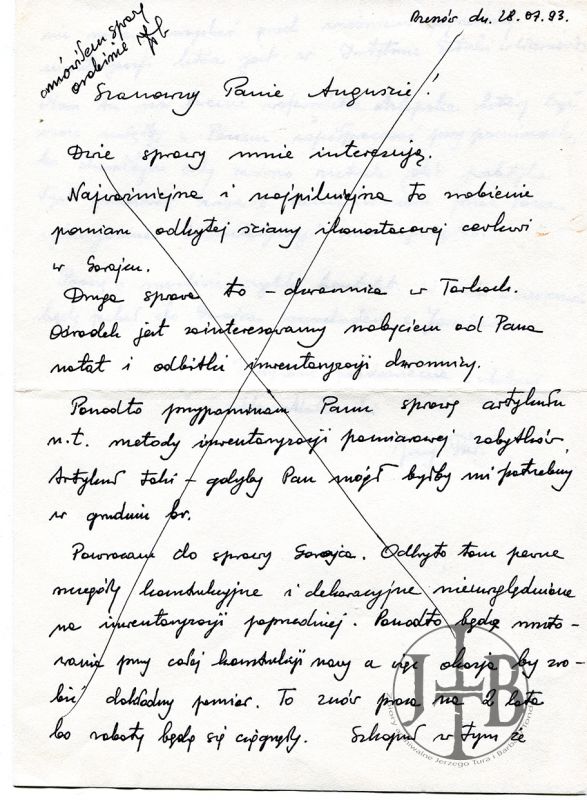 omówiłem sprawy
osobiście
JB
Brzozów dn. 28.07.93.
Szanowny Panie Auguście!
Dwie sprawy mnie interesują.
Najważniejsza i najpilniejsza to zrobienie
pomiaru odkrytej ściany ikonostasowej cerkwi
w Gorajcu.
Druga sprawa to – dzwonnica w Torkach.
Ośrodek jest zainteresowany nabyciem od Pana
notat i odbitki inwentaryzacji dzwonnicy.
Ponadto przypominam Panu sprawę artykułu
n.t. metody inwentaryzacji pomiarowej zabytków.
Artykuł taki – gdyby Pan mógł byłby mi potrzebny
w grudniu br.
Powracam do sprawy Gorajca. Odkryto tam pewne
szczegóły konstrukcyjne i dekoracyjne nieuwzględnione
na inwentaryzacji poprzedniej. Ponadto będą
przy całej konstrukcji nawy a więc okazja by zro-
bić dokładny pomiar. To znów praca na 2 lata
bo roboty będą się ciągnęły. Szkopuł w tym że
JB
Zbiory Archiwalne Jerzego Tura i Barbary Tondos